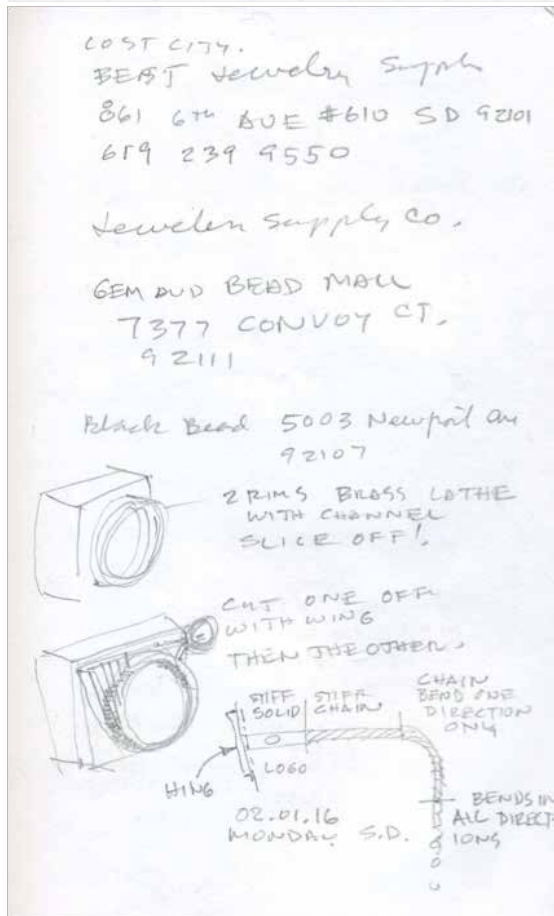 COST CITY.
BEAST Jewelry Supply
861 6TH AVE #610 SD 92101
619 239 9550
Jewelers Supply Co.
GEM AND BEAD MALL
7377 CONVOY CT.
92111
Black Bead 5003 Newport Ave
92107
2 RIMS BRASS LATHE
WITH CHANNEL
SLICE OFF!
CUT ONE OFF
WITH WING
THEN THE OTHER.
STIFF
SOLID
STIFF
CHAIN
CHAIN
BEND ONE
DIRECTION
ONLY
LOGO
HING
BENDS IN
ALL DIRECT
IONS
02.01.16
MONDAY S.D.